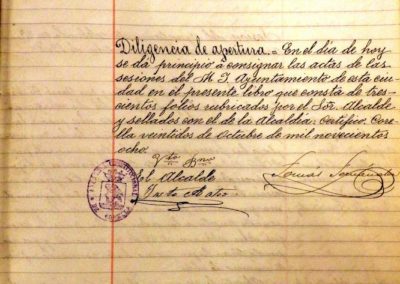 Diligencia de apertura.- En el dia de hoy
se da principio a consignar las actas de las
sesiones del M. I. Ayuntamiento de esta ciu-
dad en el presente libro que consta de tres-
cientos folios rubricados por el Sor. Alcalde
y sellados con el de la Alcaldía. Certifico Core-
lla veintidos de Octubre de mil novecientos
ocho.
Vto Bno
El Alcalde